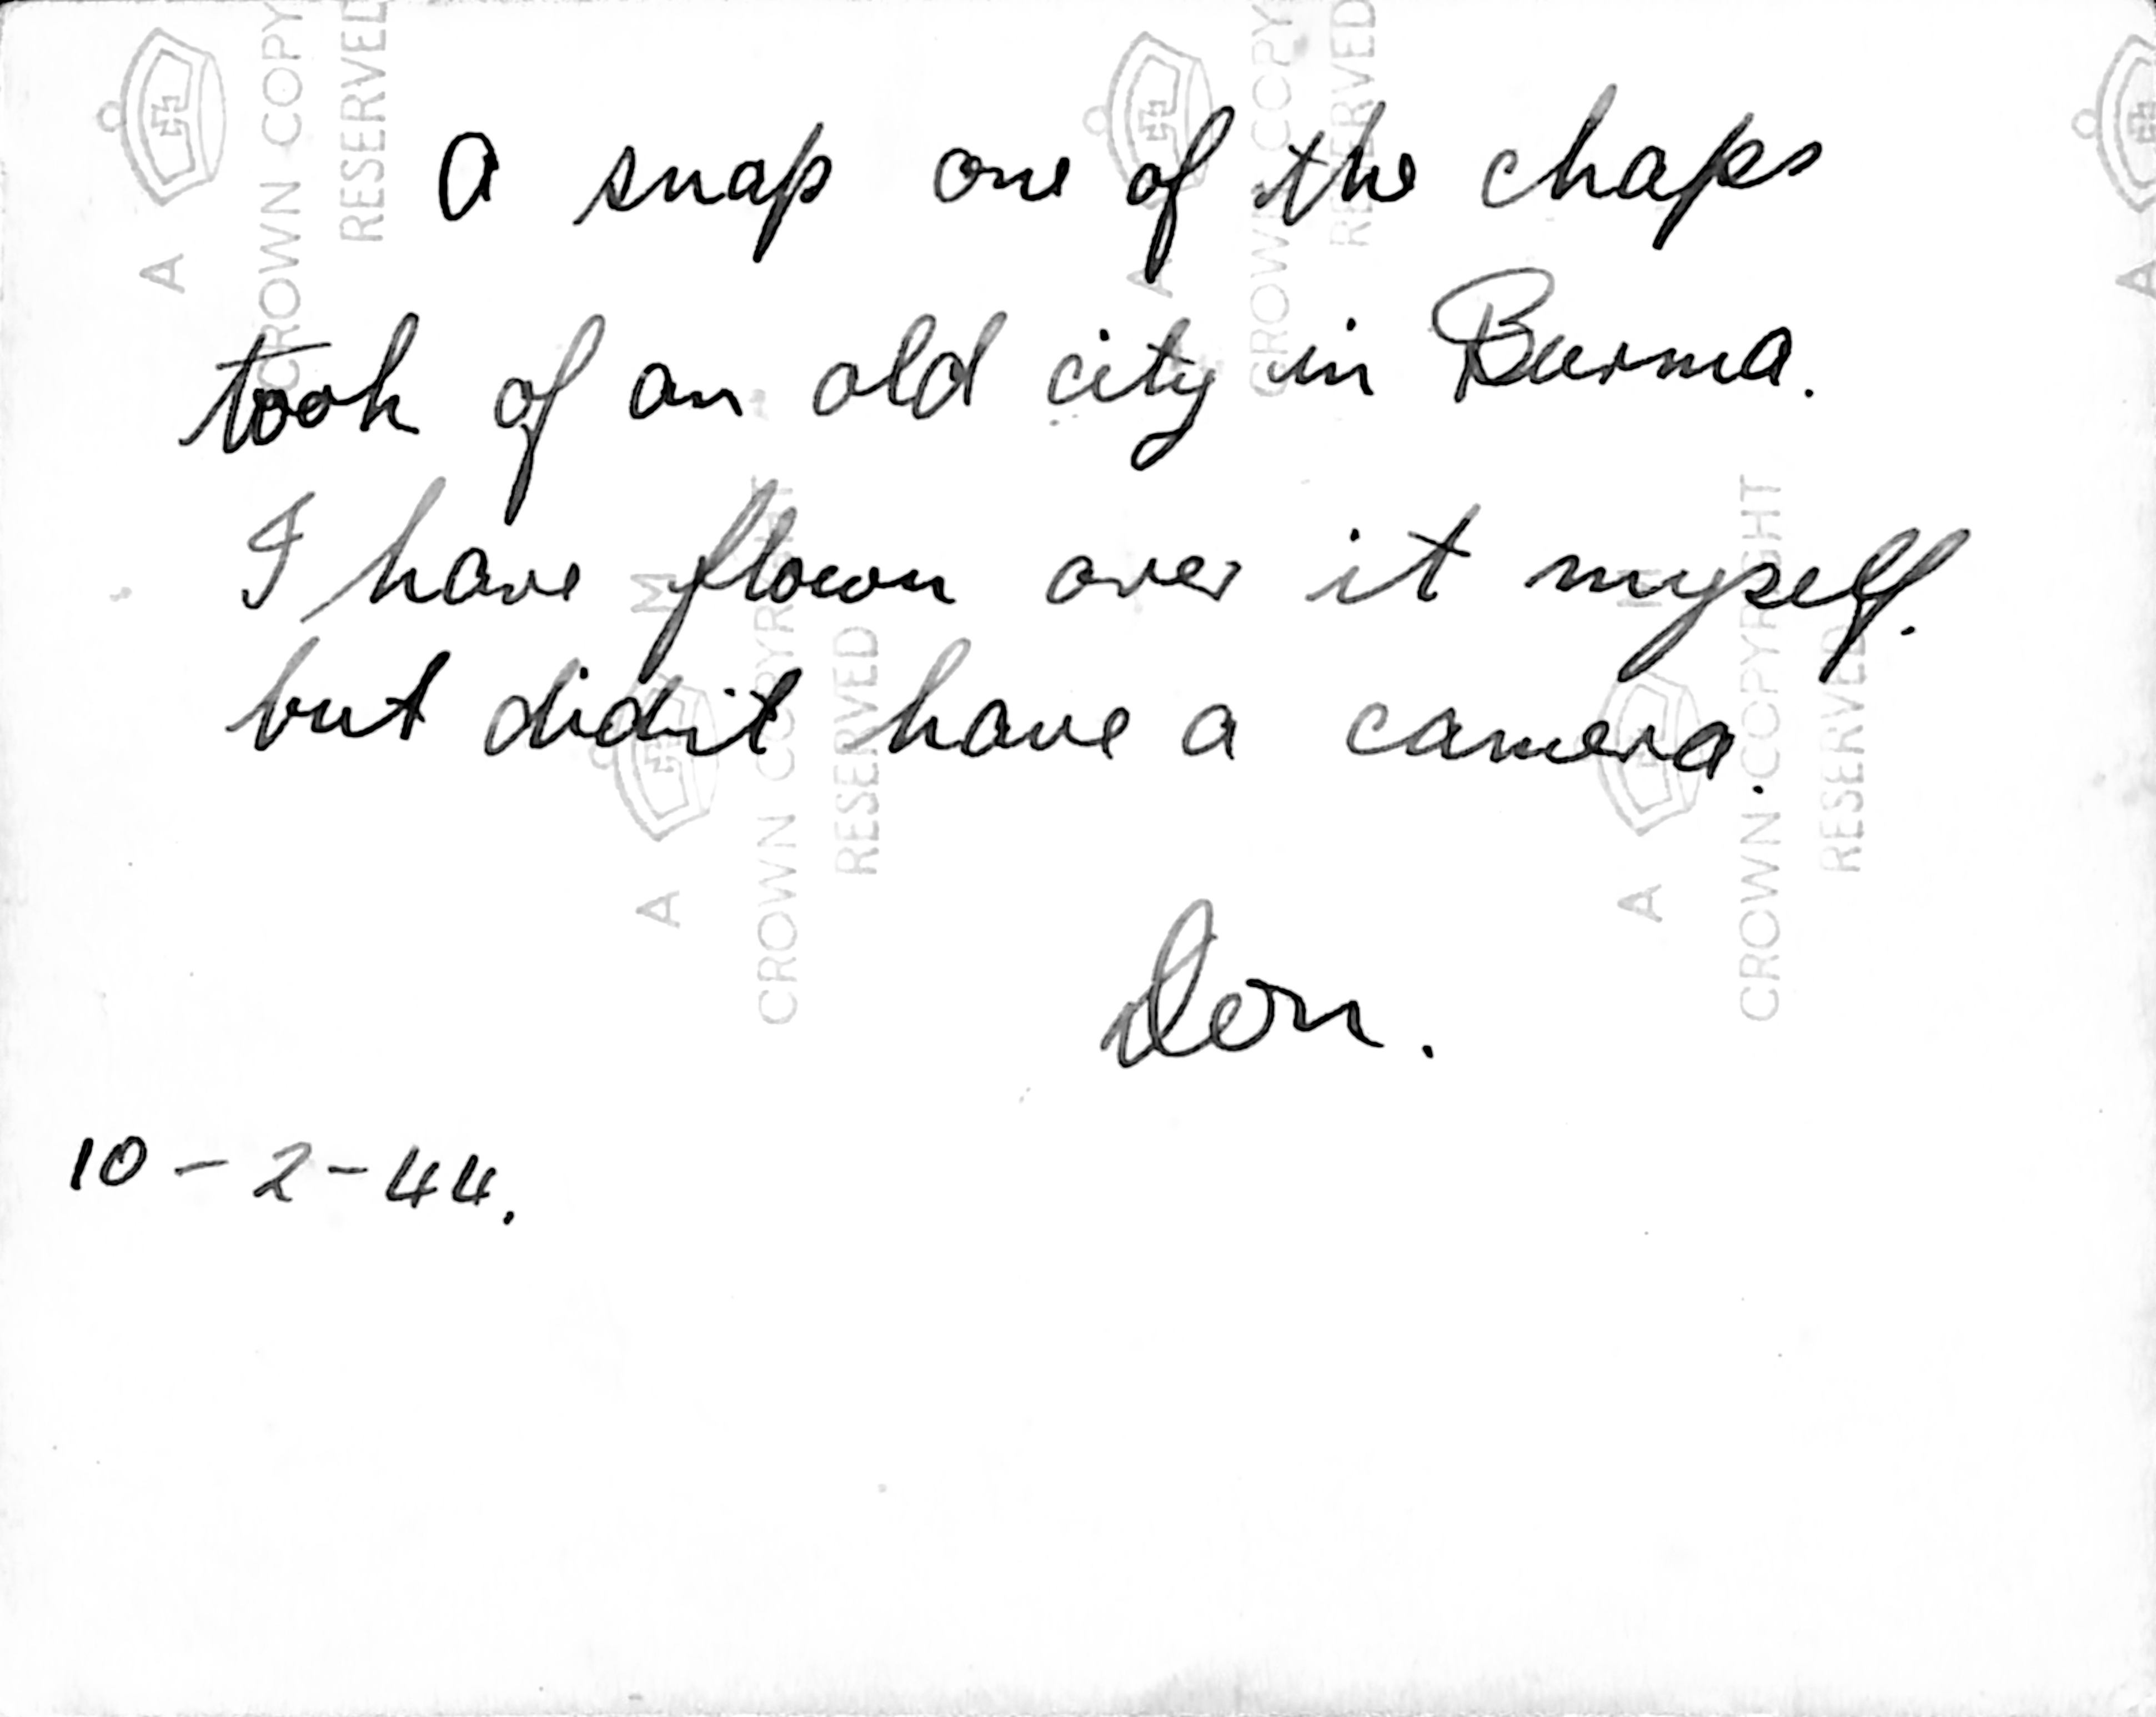 A snap one of the chaps
took of an old city in Burma.
I have flown over it myself.
but didn't have a camera.
Don.
10-2-44.
A
CROWN COPY
RESERVED
A
CROWN COPY
RESERVED
A
A M
CROWN COPYRIGHT
RESERVED
A M
CROWN COPYRIGHT
RESERVED